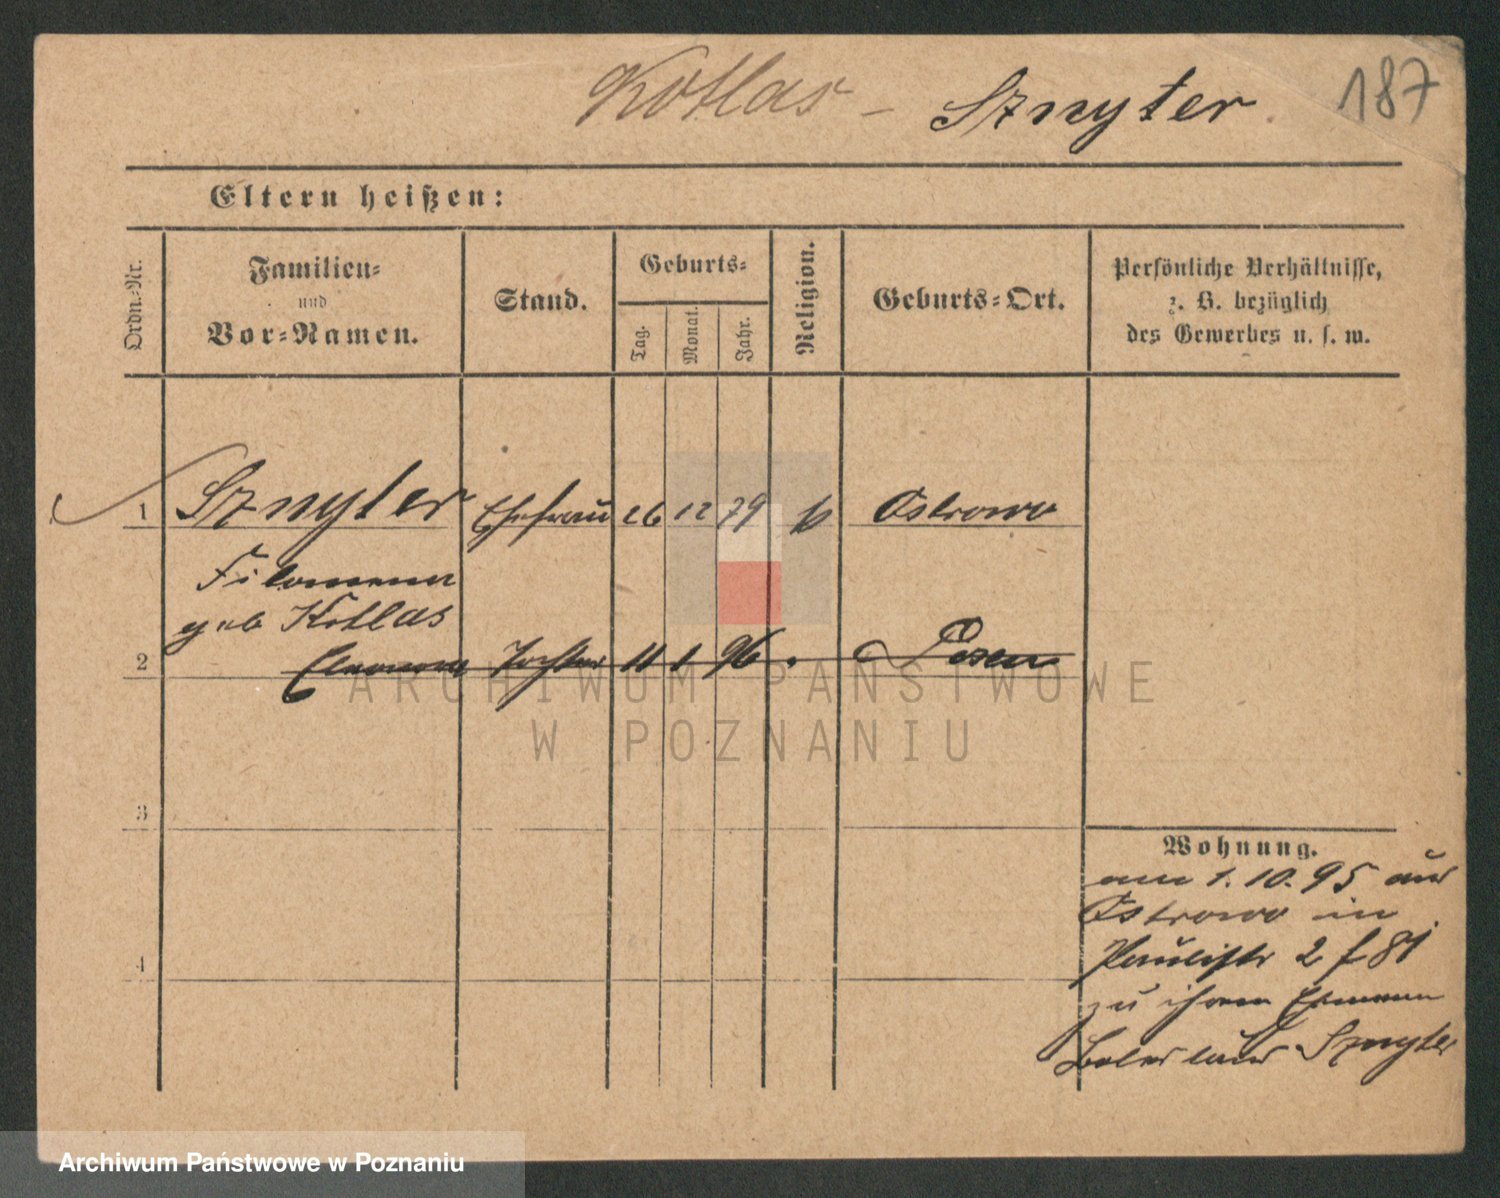 Kotlas – Sznyter
187
Eltern heißen:
Ordn.-Nr.
Familien-
und
Vor-Namen.
Stand.
Geburts-
Tag.
Monat.
Jahr.
Religion.
Geburts-Ort.
Persönliche Verhältnisse,
z. B. bezüglich
des Gewerbes u. s. w.
1 Sznyter Ehefrau 26 12 79 k Ostrowo
Filomena
geb Kotlas
2 Eleonora Tochter 11 1 96 Posen
3
4
Wohnung.
am 1.10.95 aus
Ostrowo in
Paulistr 2 f 81
zu ihrem Ehemann
Boleslaus Sznyter
ARCHIWUM PAŃSTWOWE
W POZNANIU
Archiwum Państwowe w Poznaniu